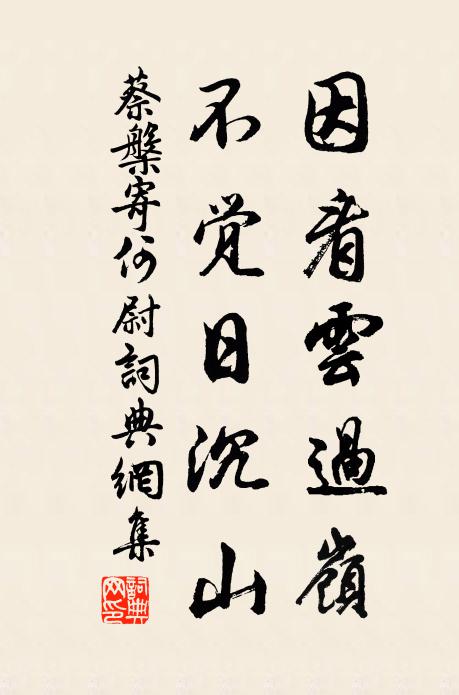 因看雲過嶺
不覚日沉山
蔡槃寄何尉詞典網集
詞典网印